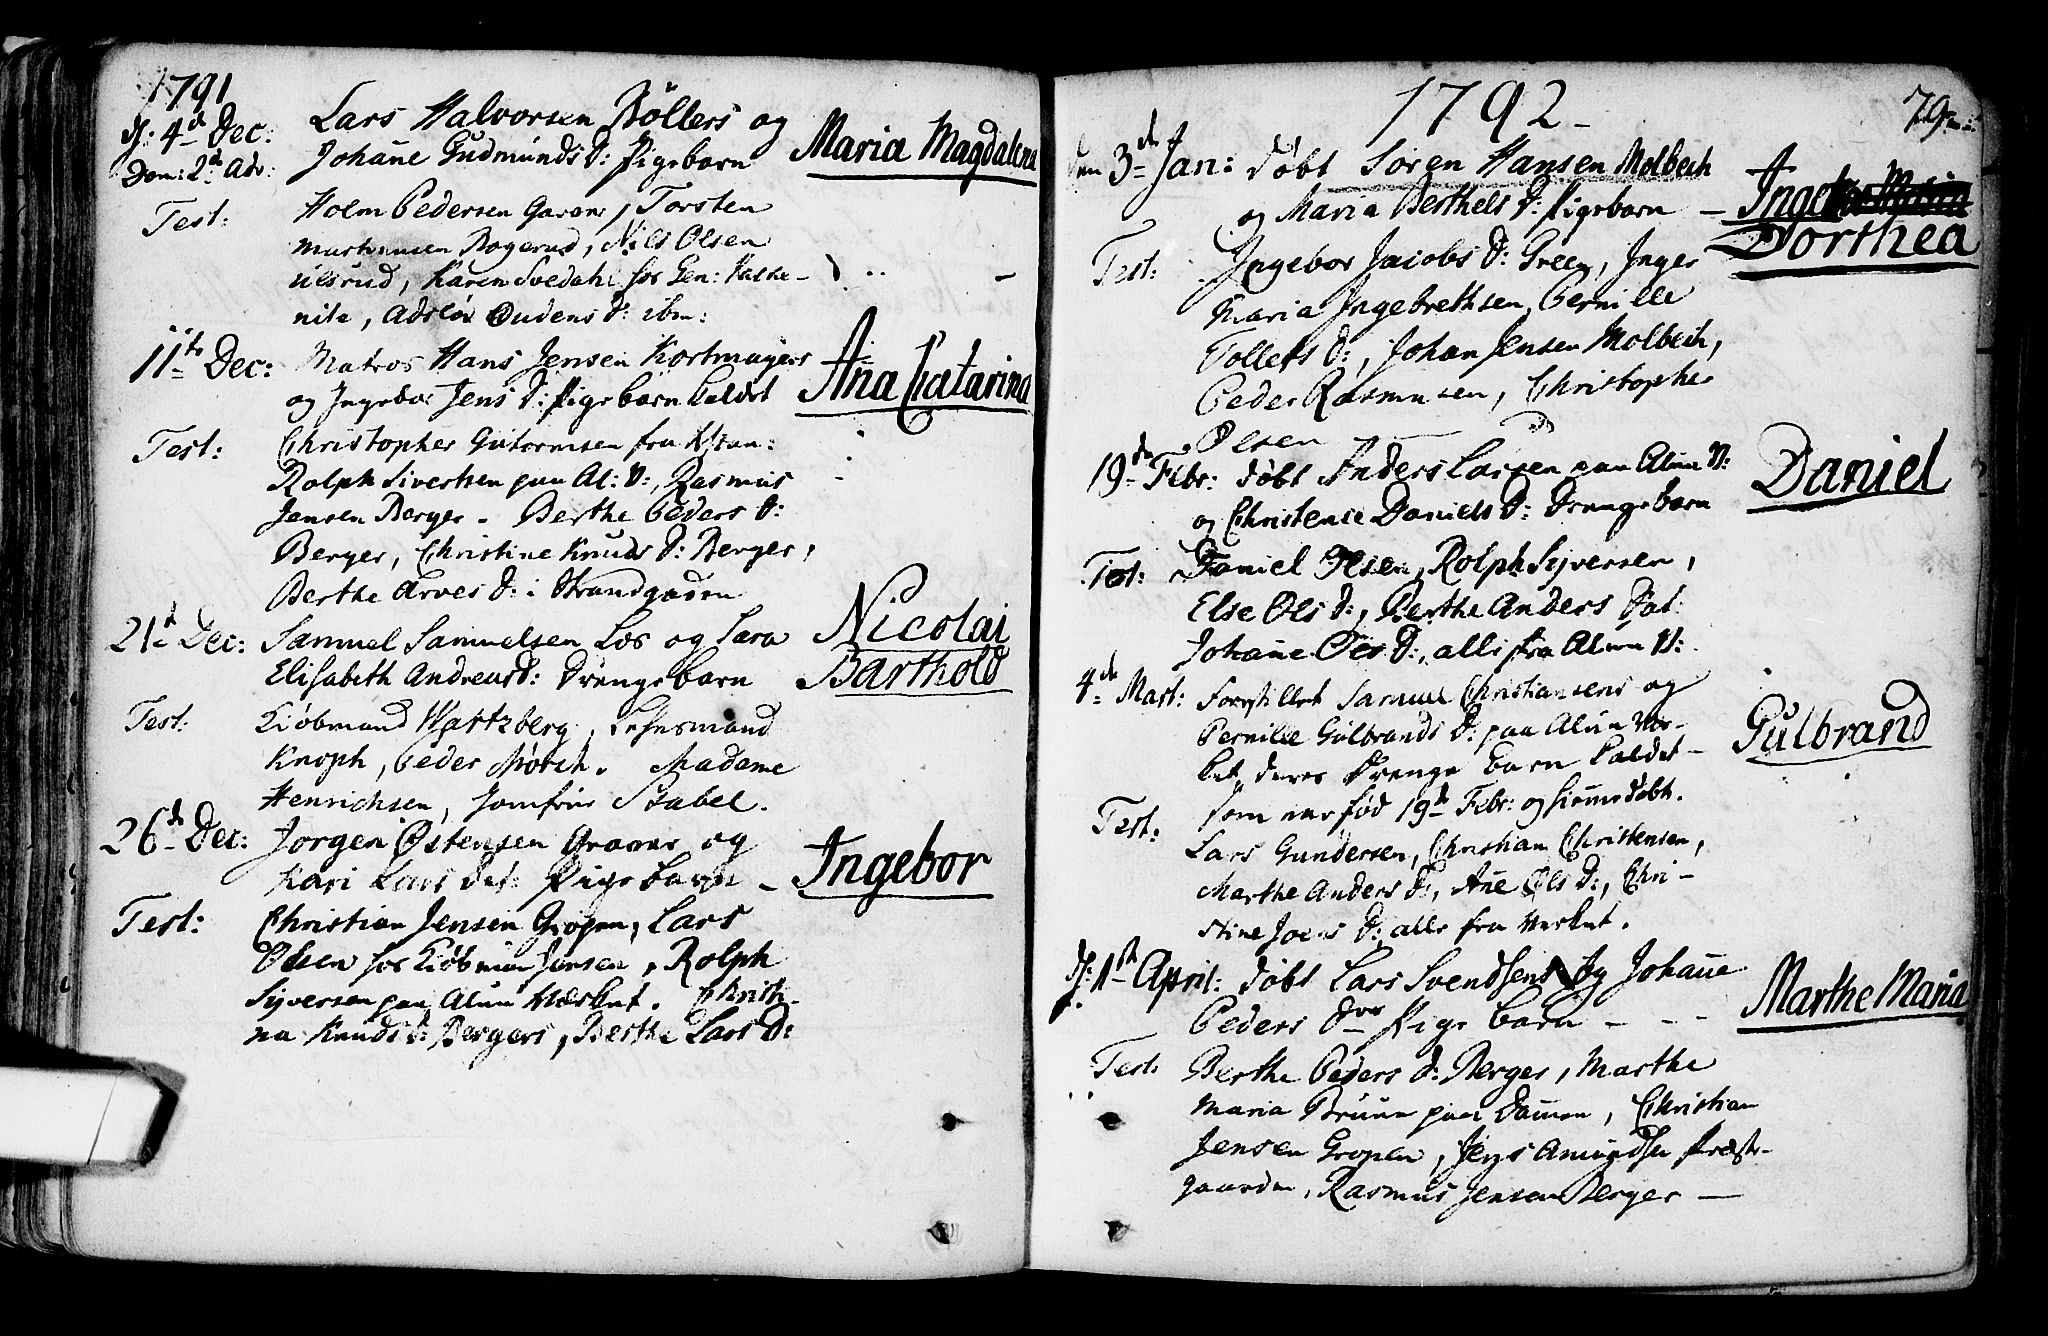 1791
d: 4de Dec: Lars Halvorsen Böllers og
Dom: 2d Adv: Johane Gudmunds D: Pigebarn Maria Magdalena
Test: Holm Pedersen Garver, Torsten
Rogerud, Nils Olsen
ulsrud, Karen Svedahl hos Gen:
Audens D: ibm:
11te Dec: Matros Hans Jensen Kortmagers Ana Catarina
og Ingebor Jens D: Pigebarn kaldet
Test: Christopher Gutormsen fra
Rolph Sivertsen paa Al: V:, Rasmus
Jensen Berger. Berthe Peders D:
Berger, Christine Knuds D: Berger,
Berthe Arves D: i Strandgaden
21d Dec: Samuel Samuelsen Los og Sara Nicolai
Elisabeth Andreas D: Drengebarn Barthold
Test: Kiöbmand Wartzberg, Lehnsmand
Knoph, Peder Mörch. Madame
Henrichsen, Jomfrue Stabel.
26de Dec: Jorgen Östensen Graver og Ingebor
Kari Lars Dat: Pigebarn –
Test: Christian Jensen Gropen, Lars
Olsen hos Kiöbman Jensen, Rolph
Syversen paa Alun Værket. Christi-
na Knuds D: Bergers, Berthe Lars D:
1792 – 79
den 3de Jan: döbt Sören Hansen Molbech
og Maria Berthels D: Pigebarn – Inge
Dorthea
Test: Ingebor Jacobs D: Green, Inger
Maria Ingebrethsen, Pernille
Tollefs D:, Johan Jensen Molbech,
Peder Rasmusen, Christopher
Olsen
19de Febr: döbt Anders Larsen paa Alun V: Daniel
og Christense Daniels D: Drengebarn
Test: Daniel Olsen, Rolph Syversen,
Else Ols D:, Berthe Anders Dat:
Johane Oles D:, alle fra Alun V:
4de Mart: Forestillet Samuel Christiansens og
Pernille Gulbrands D: paa Alun Vær- Gulbrand
ket deres Drenge barn kaldet –
som var föd 19de Febr: og hiemedöbt.
Test: Lars Gundersen, Christian Christensen,
Marthe Anders D:, Ane Ols D:, Chri-
stine Joens D: alle fra Værket.
d: 1ste April: döbt Lars Svendsens og Johane
Peders Dter Pige barn – – – Marthe Maria
Test: Berthe Peders D: Berger, Marthe
Maria Bruun paa Damen, Christian
Jensen Gropen, Jens Amundsen Præste-
gaarden, Rasmus Jensen Berger –